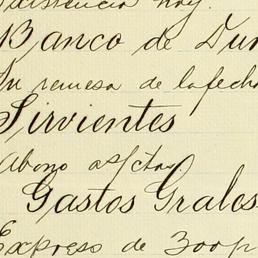 Existencia hoy.
Banco de Dur
Su remesa de la fecha
Sirvientes
Abono as/ctas
Gastos Grales
Express de 300 p